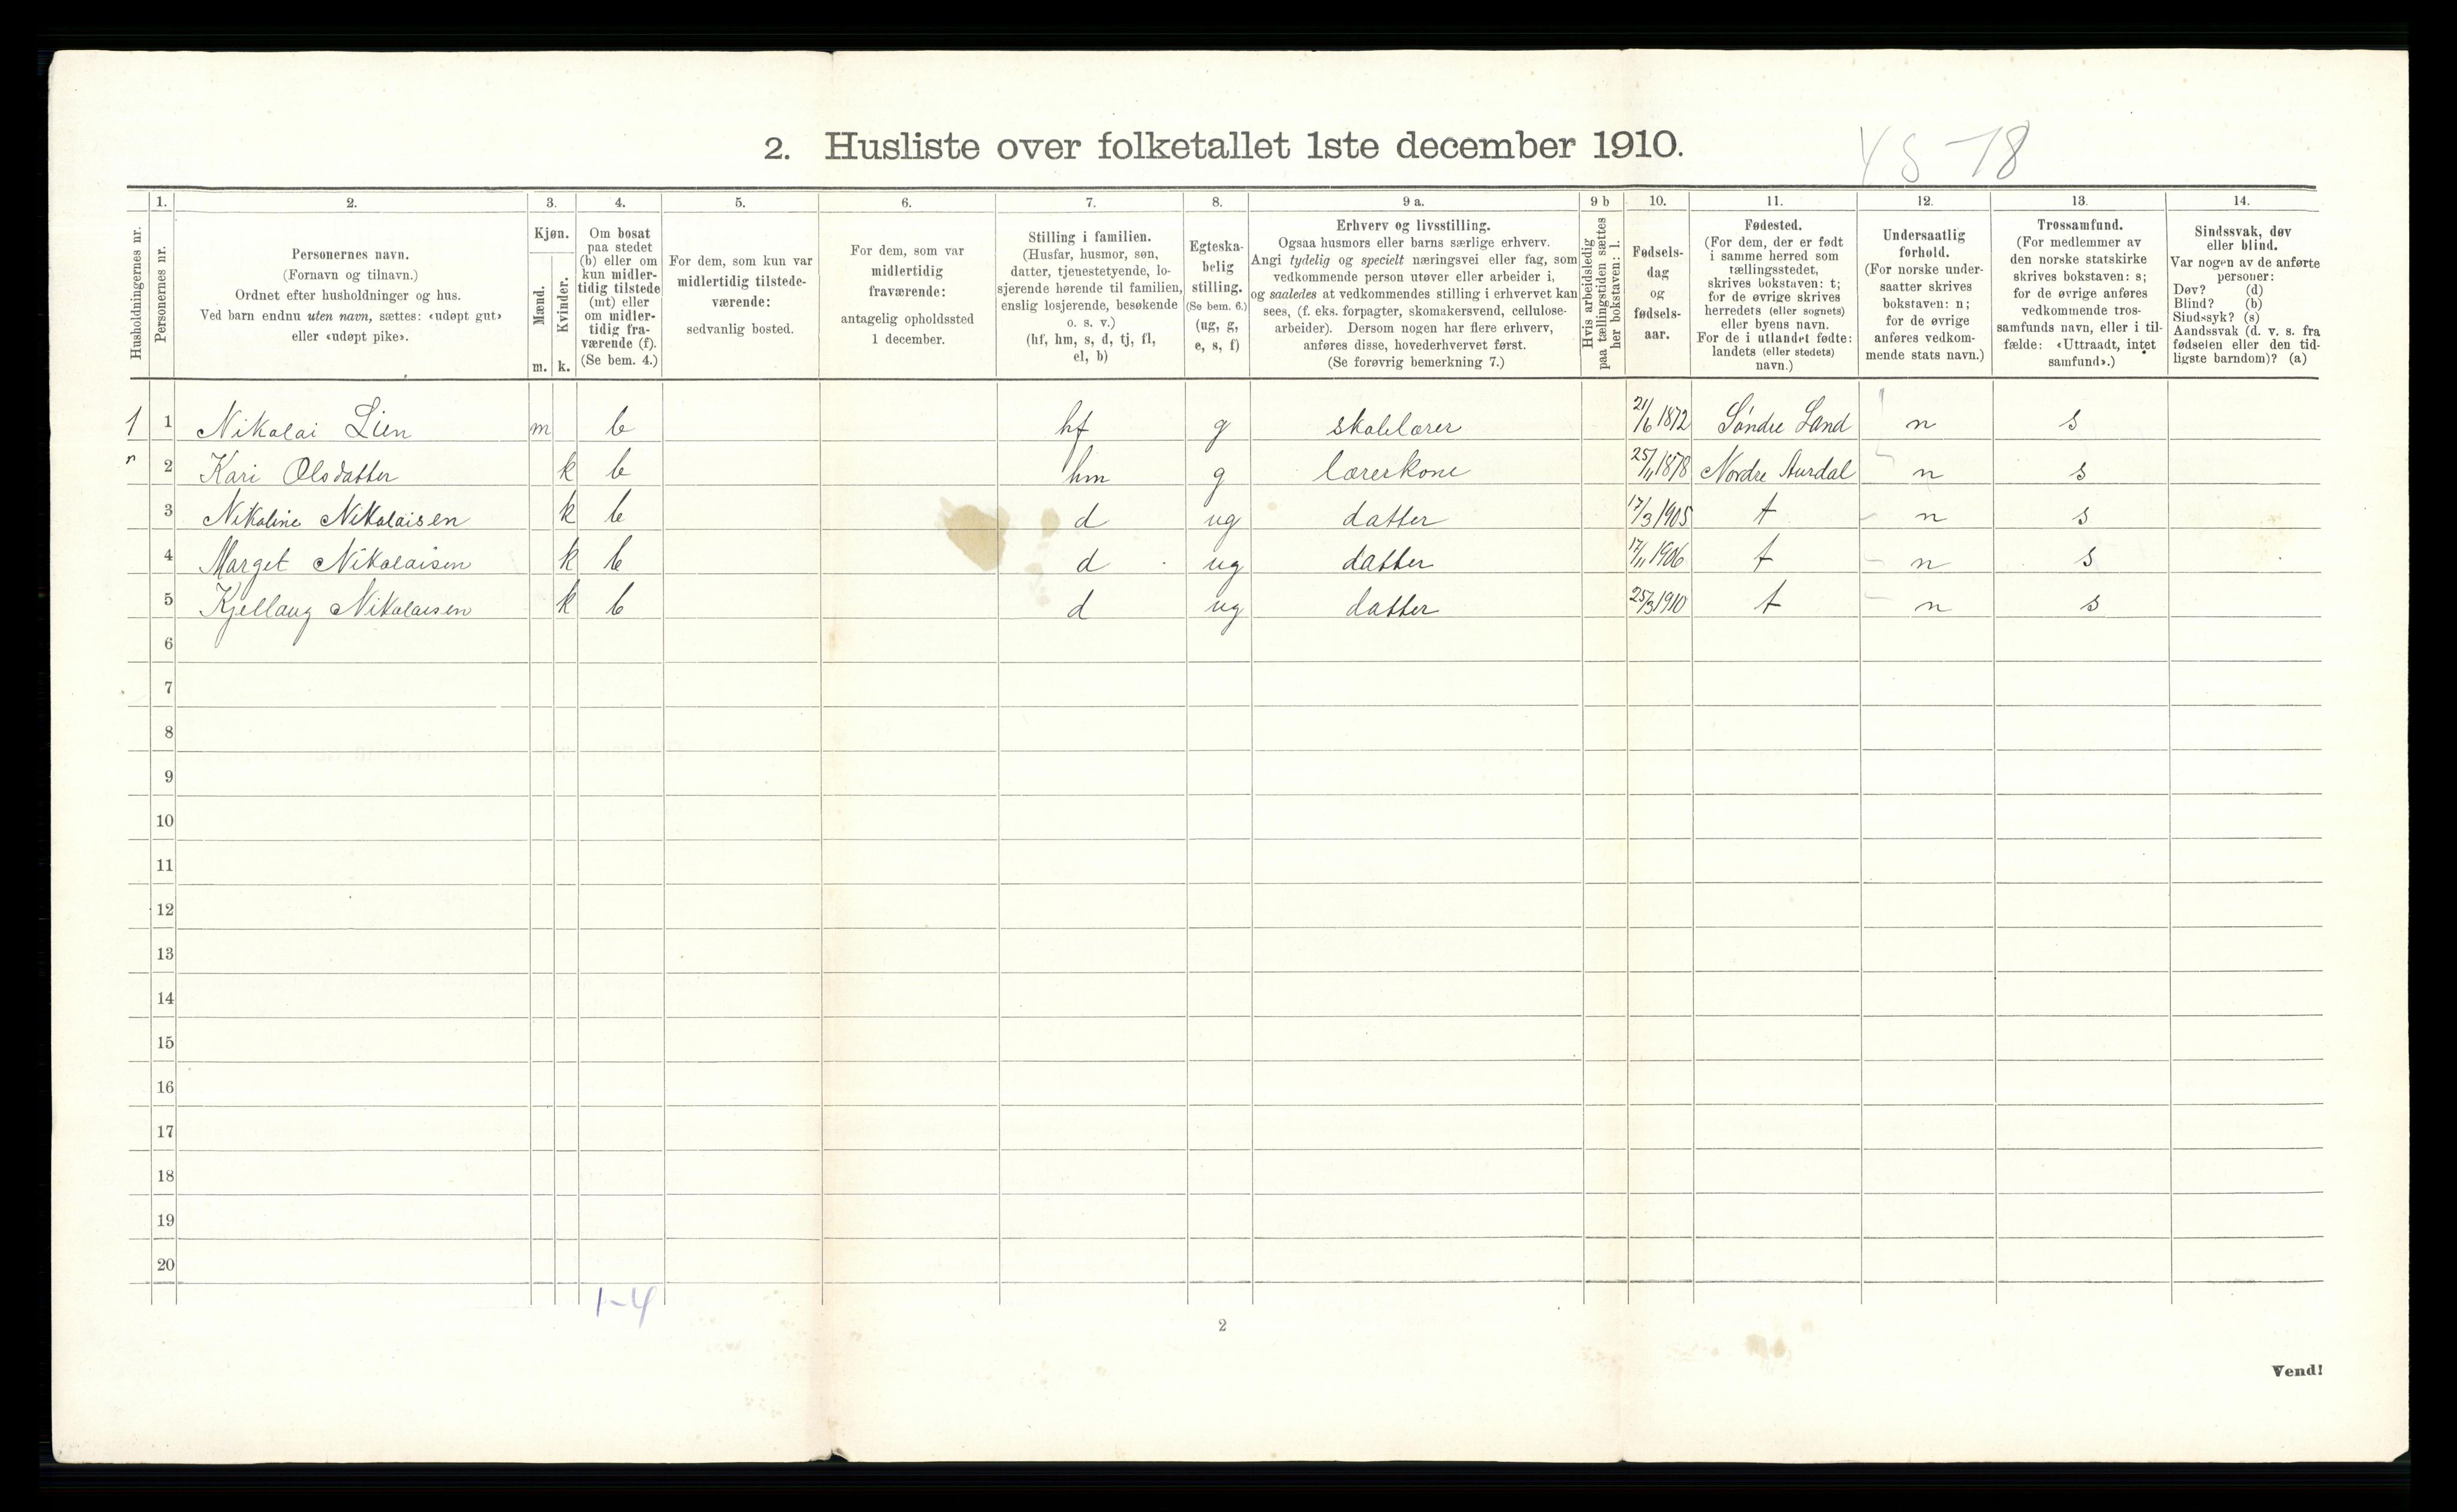 2. Husliste over folketallet 1ste december 1910.
Husholdningernes nr.
1.
Personernes nr.
2.
Personernes navn.
(Fornavn og tilnavn.)
Ordnet efter husholdninger og hus.
Ved barn endnu uten navn, sættes: «udøpt gut»
eller «udøpt pike».
3.
Kjøn.
Mænd. Kvinder.
m. k.
4.
Om bosat
paa stedet
(b) eller om
kun midler-
tidig tilstede
(mt) eller
om midler-
tidig fra-
værende (f).
(Se bem. 4.)
5.
For dem, som kun var
midlertidig tilstede-
værende:
sedvanlig bosted.
6.
For dem, som var
midlertidig
fraværende:
antagelig opholdssted
1 december.
7.
Stilling i familien.
(Husfar, husmor, søn,
datter, tjenestetyende, lo-
sjerende hørende til familien,
enslig losjerende, besøkende
o. s. v.)
(hf, hm, s, d, tj, fl,
el, b)
8.
Egteska-
belig
stilling.
(Se bem. 6.)
(ug, g,
e, s, f)
9 a.
Erhverv og livsstilling.
Ogsaa husmors eller barns særlige erhverv.
Angi tydelig og specielt næringsvei eller fag, som
vedkommende person utøver eller arbeider i,
og saaledes at vedkommendes stilling i erhvervet kan
sees, (f. eks. forpagter, skomakersvend, cellulose-
arbeider). Dersom nogen har flere erhverv,
anføres disse, hovederhvervet først.
(Se forøvrig bemerkning 7.)
9 b
Hvis arbeidsledig
paa tællingstiden sættes
her bokstaven: l.
10.
Fødsels-
dag
og
fødsels-
aar.
11.
Fødested.
(For dem, der er født
i samme herred som
tællingsstedet,
skrives bokstaven: t;
for de øvrige skrives
herredets (eller sognets)
eller byens navn.
For de i utlandet fødte:
landets (eller stedets)
navn.)
12.
Undersaatlig
forhold.
(For norske under-
saatter skrives
bokstaven: n;
for de øvrige
anføres vedkom-
mende stats navn.)
13.
Trossamfund.
(For medlemmer av
den norske statskirke
skrives bokstaven: s;
for de øvrige anføres
vedkommende tros-
samfunds navn, eller i til-
fælde: «Uttraadt, intet
samfund».)
14.
Sindssvak, døv
eller blind.
Var nogen av de anførte
personer:
Døv? (d)
Blind? (b)
Sindssyk? (s)
Aandssvak (d. v. s. fra
fødselen eller den tid-
ligste barndom)? (a)
1 1 Nikolai Lien m b hf g skolelærer 21/6 1872 Søndre Land n s
2 Kari Olsdatter k b hm g lærerkone 25/11 1878 Nordre Aurdal n s
3 Nikoline Nikolaisen k b d ug datter 17/3 1905 t n s
4 Marget Nikolaisen k b d ug datter 17/11 1906 t n s
5 Kjellaug Nikolaisen k b d ug datter 25/3 1910 t n s
6
7
8
9
10
11
12
13
14
15
16
17
18
19
20
1-4
2
Vend!